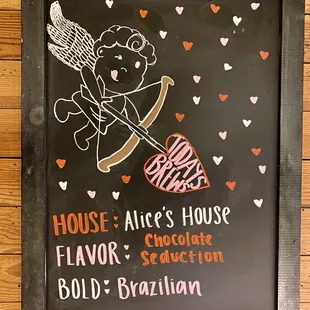 TODAY'S
BREWS
HOUSE: Alice's House
FLAVOR: Chocolate
Seduction
BOLD: Brazilian